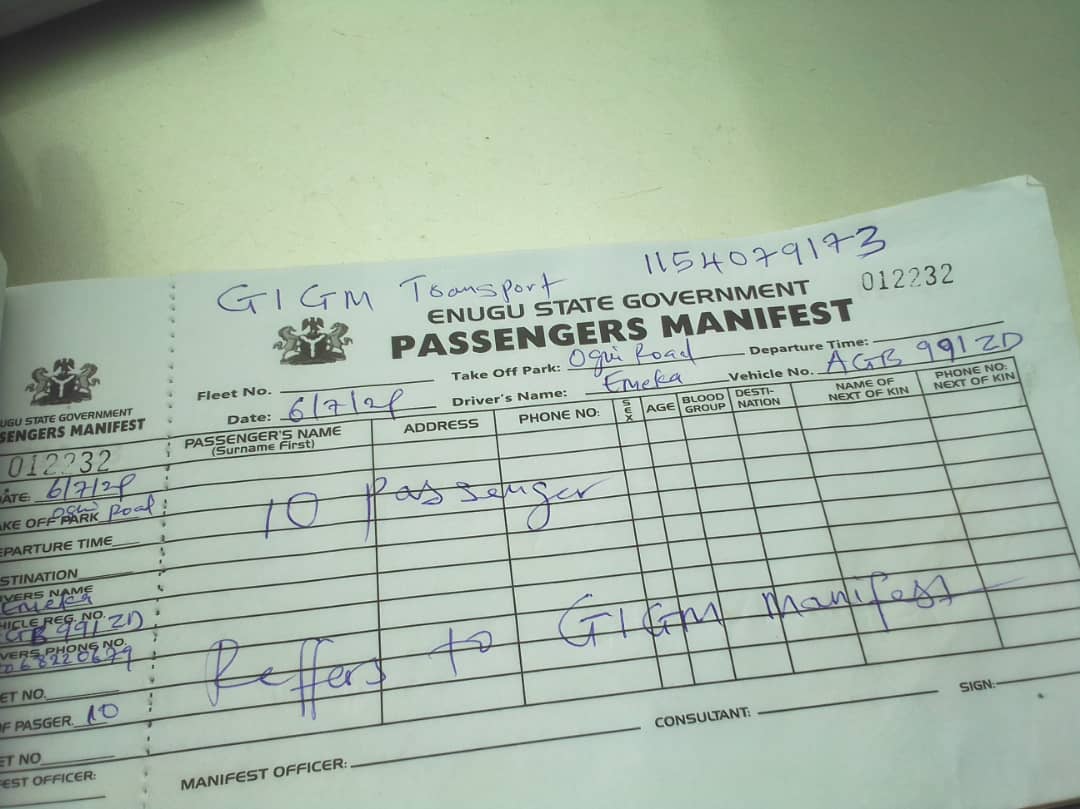 GIGM Transport 1154079173
ENUGU STATE GOVERNMENT 012232
PASSENGERS MANIFEST
Fleet No. Take Off Park: Ogui Road Departure Time:
Date: 6/7/2 Driver's Name: Emeka Vehicle No. AGB 991 ZD
PASSENGER'S NAME (Surname First) ADDRESS PHONE NO: SEX AGE BLOOD GROUP DESTI-NATION NAME OF NEXT OF KIN PHONE NO: NEXT OF KIN
10 Passenger
Reffers to GIGM manifest
MANIFEST OFFICER: CONSULTANT: SIGN:
UGU STATE GOVERNMENT
SENGERS MANIFEST
012232
ATE 6/7/2
AKE OFF PARK Ogui Road
EPARTURE TIME
STINATION
IVERS NAME
Emeka
HICLE REG. NO.
GB 991 ZD
VERS PHONE NO.
068220679
ET NO.
F PASGER. 10
ET NO
EST OFFICER: